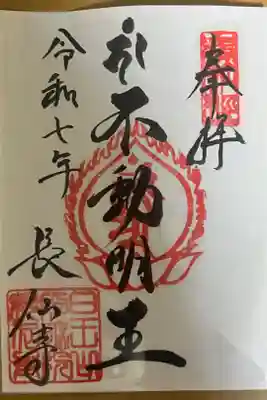 奉拝
不動明王
令和七年
長仙寺